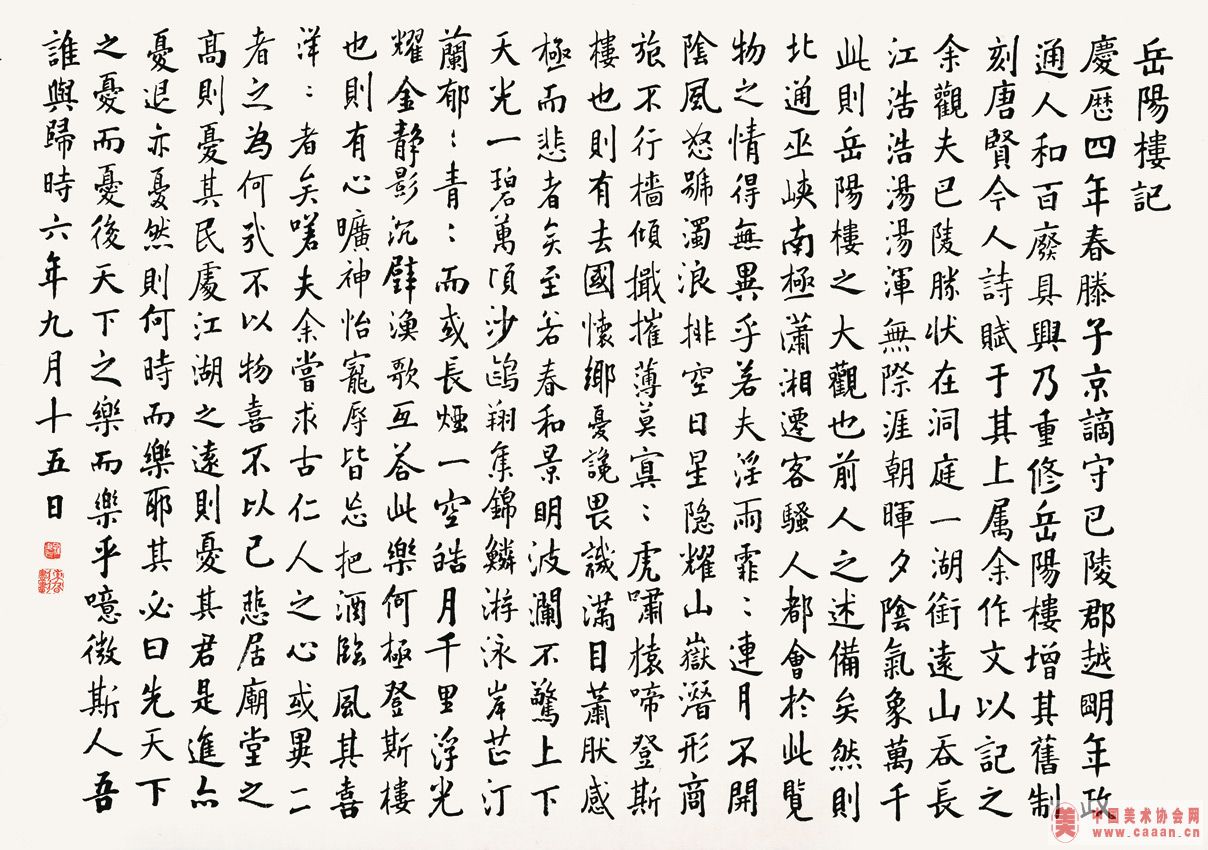 岳陽樓記
慶歷四年春滕子京謫守巴陵郡越明年政
通人和百廢具興乃重修岳陽樓增其舊制
刻唐賢今人詩賦于其上属余作文以記之
余觀夫巴陵勝状在洞庭一湖銜遠山吞長
江浩浩湯湯渾無際涯朝暉夕陰氣象萬千
此則岳陽樓之大觀也前人之述備矣然則
北通巫峽南極瀟湘遷客騷人都會於此覽
物之情得無異乎若夫淫雨霏〻連月不開
陰風怒號濁浪排空日星隐耀山嶽潛形商
旅不行檣傾檝摧薄莫寞〻虎嘯猿啼登斯
樓也則有去國懷鄉憂讒畏譏滿目蕭肰感
極而悲者矣至若春和景明波瀾不驚上下
天光一碧萬頃沙鷗翔集錦鱗游泳岸芷汀
蘭郁〻青〻而或長煙一空皓月千里浮光
耀金靜影沉璧漁歌互答此樂何極登斯樓
也則有心曠神怡寵辱皆忘把酒臨風其喜
洋〻者矣嗟夫余嘗求古仁人之心或異二
者之為何哉不以物喜不以己悲居廟堂之
高則憂其民處江湖之遠則憂其君是進亦
憂退亦憂然則何時而樂耶其必曰先天下
之憂而憂後天下之樂而樂乎噫微斯人吾
誰與歸時六年九月十五日
美 中国美术协会网
www.caaan.cn